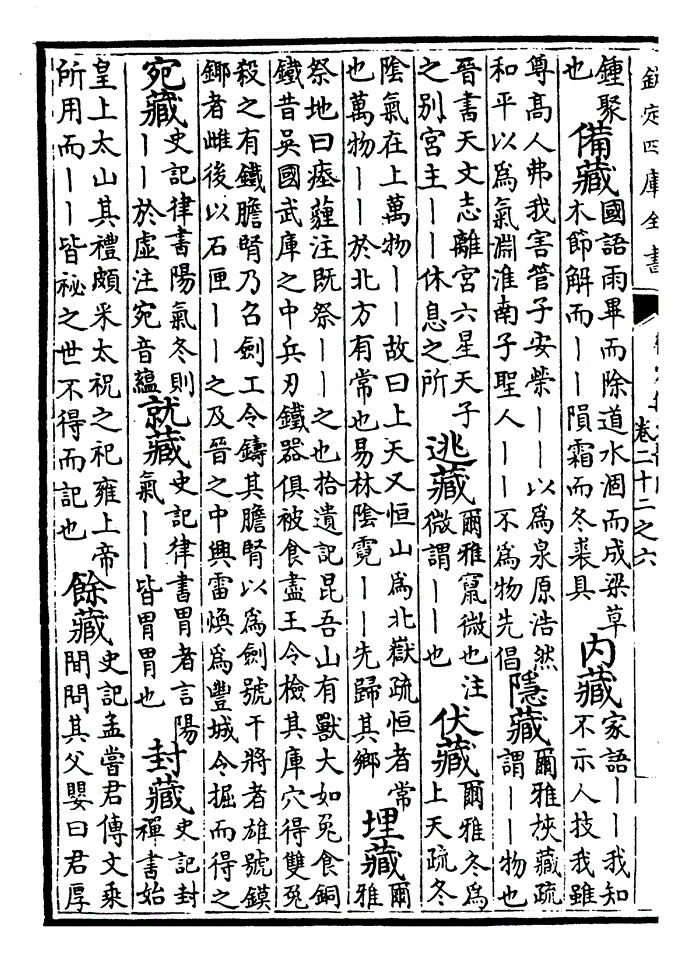 欽定四庫全書
卷二十二之六
鍾聚
也
備藏
國語雨畢而除道水涸而成梁草
木節解而丨丨隕霜而冬裘具
內藏
家語丨丨我知
不示人技我雖
尊髙人弗我害管子安榮丨丨以為泉原浩然
和平以為氣淵淮南子聖人丨丨不為物先倡
隱藏
爾雅挾藏疏
謂丨丨物也
晉書天文志離宮六星天子
之别宮主丨丨休息之所
逃藏
爾雅竄微也注
微謂丨丨也
伏藏
爾雅冬爲
上天疏冬
陰氣在上萬物丨丨故曰上天又恒山爲北嶽疏恒者常
也萬物丨丨於北方有常也易林陰霓丨丨先歸其鄉
埋藏
爾
雅
祭地曰瘞薶注既祭丨丨之也拾遺記昆吾山有獸大如兔食銅
鐵昔吳國武庫之中兵刃鐵器俱被食盡王令檢其庫穴得雙兔
殺之有鐵膽腎乃召劍工令鑄其膽腎以爲劍號干將者雄號鏌
鎁者雌後以石匣丨丨之及晉之中興雷煥爲豐城令掘而得之
宛藏
史記律書陽氣冬則
丨丨於虛注宛音蘊
就藏
史記律書胃者言陽
氣丨丨皆胃胃也
封藏
史記封
禪書始
皇上太山其禮頗采太祝之祀雍上帝
所用而丨丨皆祕之世不得而記也
餘藏
史記孟嘗君傳文乘
間問其父嬰曰君厚